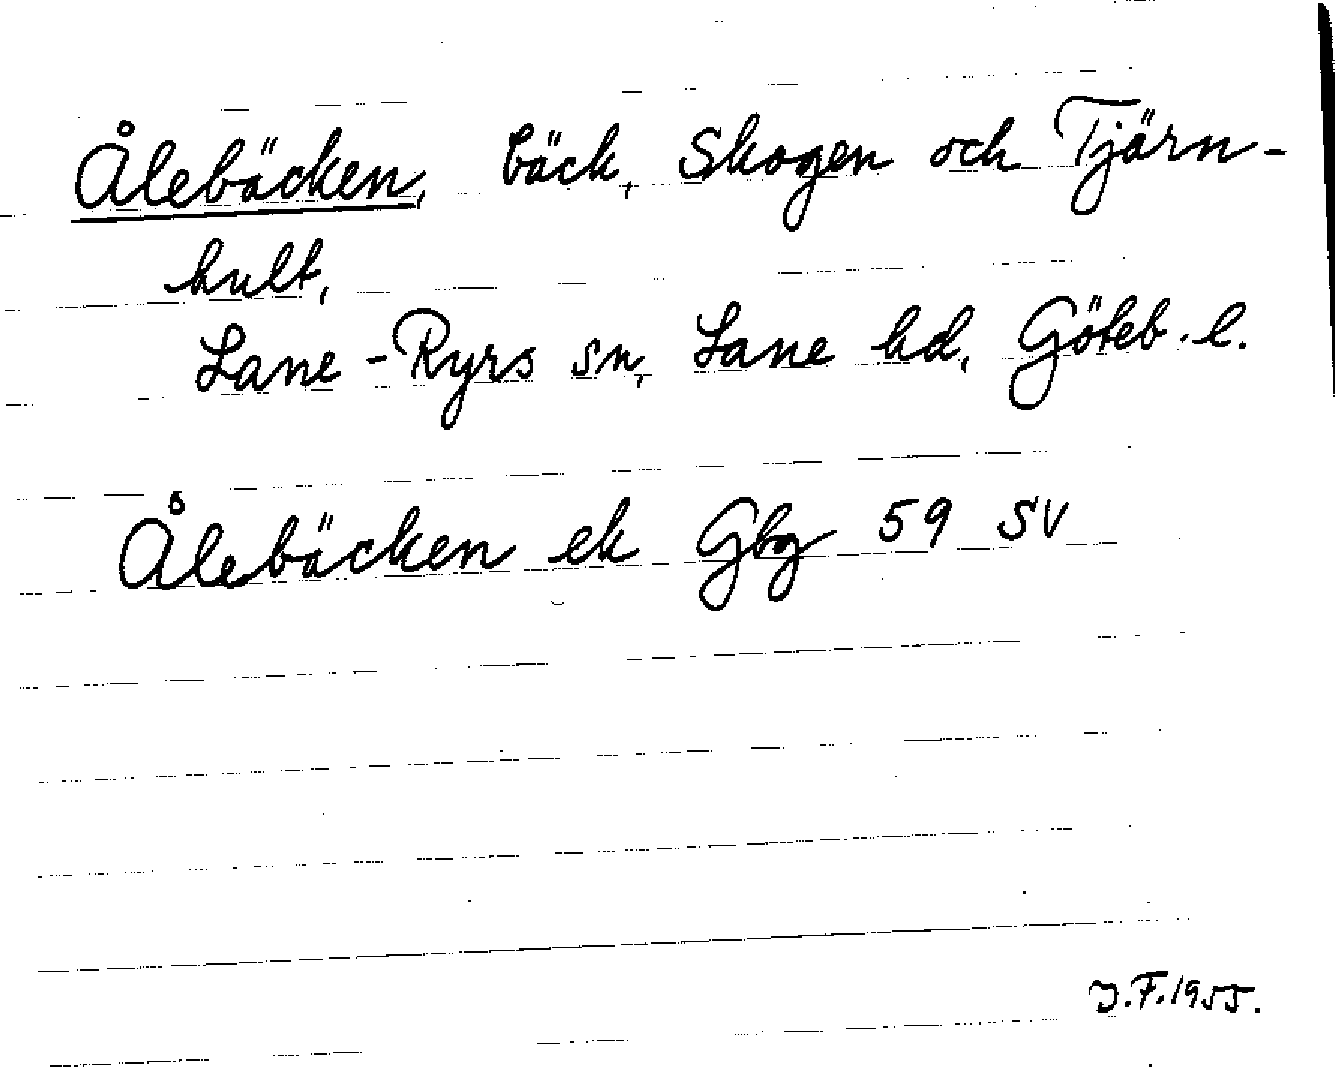 Ålebäcken, bäck, Skogen och Tjärn-
hult,
Lane-Ryrs sn, Lane hd, Göteb. l.
Ålebäcken ek Gbg 59 SV
J.F. 1955.